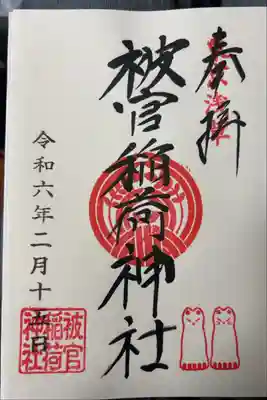 奉拝
被官稲荷神社
令和六年二月十日
被官
稲荷
神社